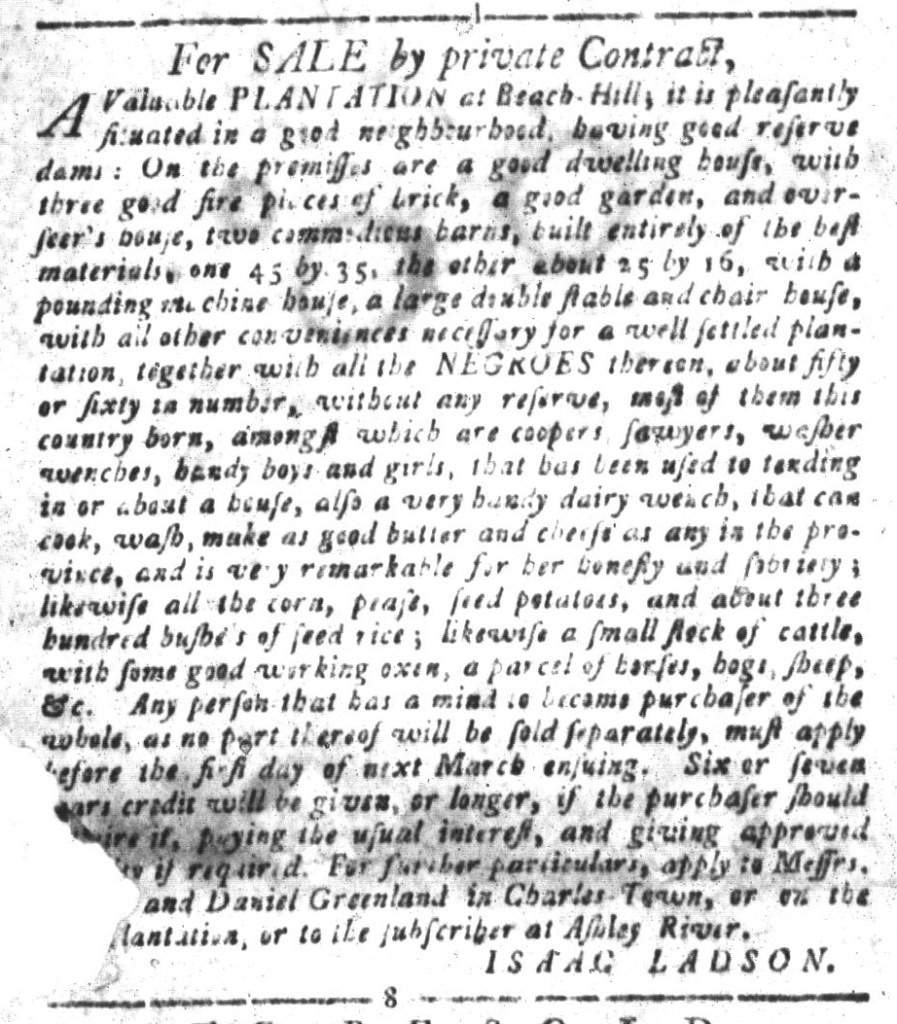 For SALE by private Contract,
A Valuable PLANTATION at Beach-Hill; it is pleaſantly
ſituated in a good neighbourhood, having good reſerve
dams: On the premiſſes are a good dwelling houſe, with
three good fire pieces of brick, a good garden, and over-
ſeer's houſe, two commodious barns, built entirely of the beſt
materials, one 45 by 35, the other about 25 by 16, with a
pounding machine houſe, a large double ſtable and chair houſe,
with all other conveniences neceſſary for a well ſettled plan-
tation, together with all the NEGROES thereon, about fifty
or ſixty in number, without any reſerve, moſt of them this
country born, amongſt which are coopers, ſawyers, waſher
wenches, handy boys and girls, that has been uſed to tending
in or about a houſe, alſo a very handy dairy wench, that can
cook, waſh, make as good butter and cheeſe as any in the pro-
vince, and is very remarkable for her honeſty and ſobriety;
likewiſe all the corn, peaſe, ſeed potatoes, and about three
hundred buſhels of ſeed rice; likewiſe a ſmall ſtock of cattle,
with ſome good working oxen, a parcel of horſes, hogs, ſheep,
&c. Any perſon that has a mind to become purchaſer of the
whole, as no part thereof will be ſold ſeparately, muſt apply
before the firſt day of next March enſuing. Six or ſeven
ears credit will be given, or longer, if the purchaſer ſhould
it, paying the uſual intereſt, and giving approved
if required. For further particulars, apply to Meſſrs.
and Daniel Greenland in Charles-Town, or on the
lantation, or to the ſubſcriber at Aſhley River.
ISAAC LADSON.
8